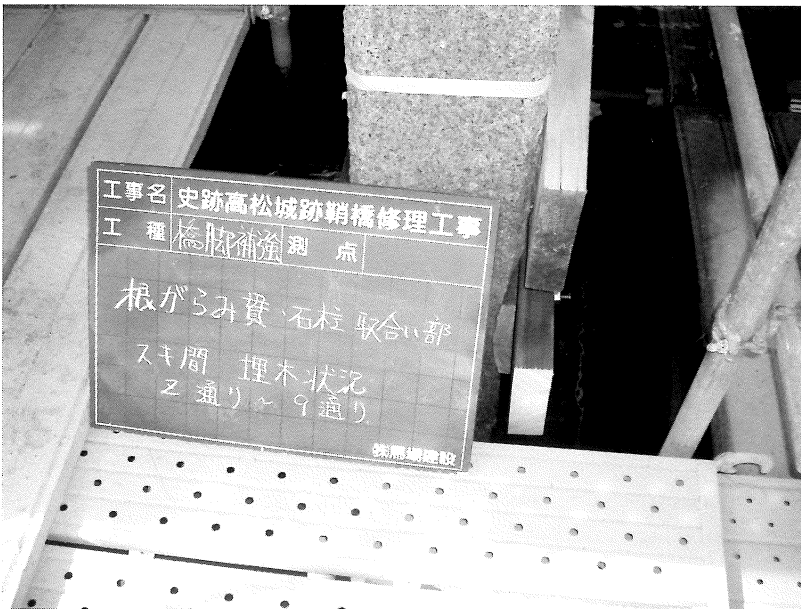 工事名 史跡高松城跡鞘橋修理工事
工種 橋脚補強 測点
根がらみ貫・石柱 取合い部
スキ間 埋木状況
2通り~9通り